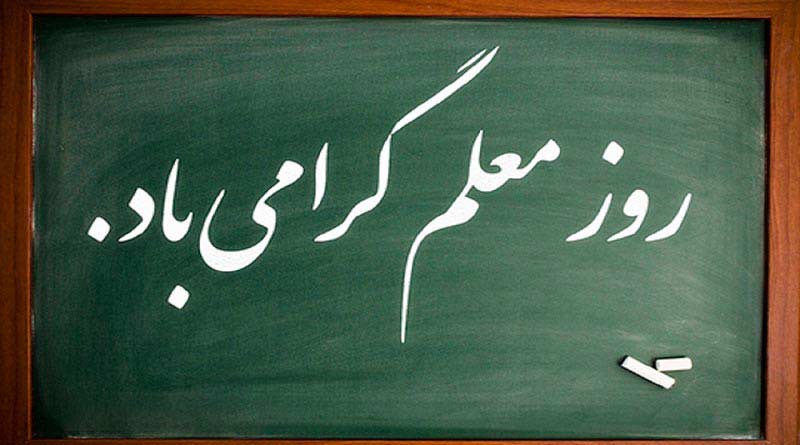 روز معلم گرامی باد.